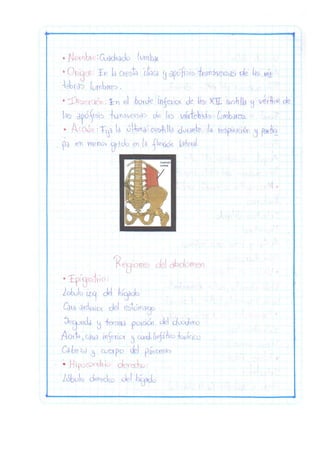 • Nombre: Cuadrado lumbar
• Origen: En la cresta iliaca y apófisis transversas de las vér
tebras lumbares.
• Inserción: En el borde inferior de la XII costilla y vértice de
las apófisis transversas de las vértebras lumbares
• Acción: Fija la última costilla durante la respiración y partici
pa en menor grado en la flexión lateral
Regiones del abdomen
• Epigastrio:
Lóbulo izq. del hígado
Cara anterior del estómago
Segunda y tercera porción del duodeno
Aorta, cava inferior y cond. linfático torácico
Cabeza y cuerpo del páncreas
• Hipocondrio derecho:
Lóbulo derecho del hígado